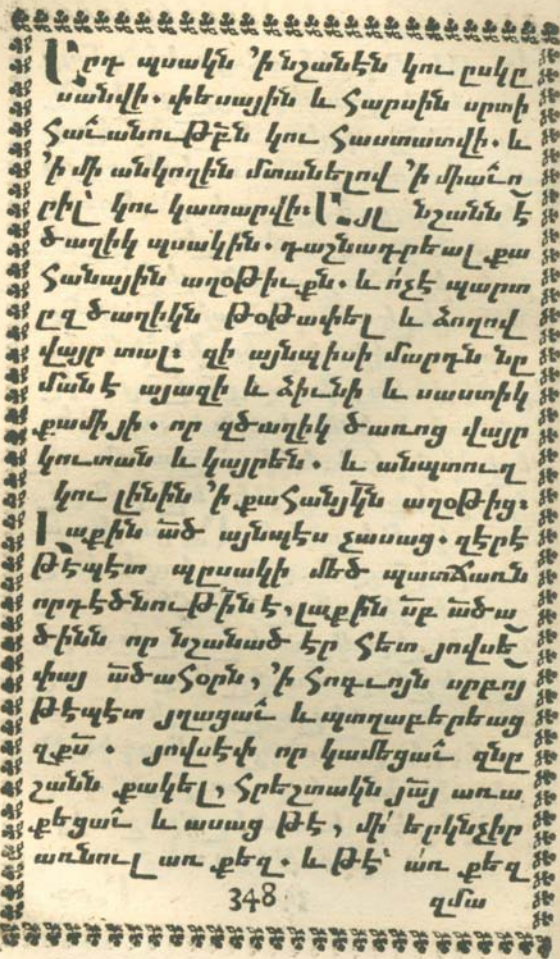 Արդ պսակն ՚ի նշանէն կու ըսկը
սանվի. փեսային և հարսին սրտի
հաւանութբն կու հաստատվի. և
՚ի մի անկողին մտանելով ՚ի միաւո
րիլ՝ կու կատարվի։ Այլ նշանն է
ծաղիկ պսակին. դաշնադրեալ քա
հանային աղօթիւքն. և ո՛չէ պարտ
ըզծաղիկն թօթափել և ձողով
վայր տալ։ զի այնպիսի մարդն նը
ման է այազի և ձիւնի և սաստիկ
քամիյի. որ զծաղիկ ծառոց վայր
կուտան և կայրեն. և անպտուղ
կու լինին ՚ի քահանայկն աղօթից։
Լաքին ած այնպէս չասաց. զէրէ
Թէպէտ պըսակի մեծ պատճառն
որդէծնութին է, լաքին սբ ածա
ծինն որ նշանած էր հետ յովսէ
փայ ածահօրն, ՚ի հոգւոյն սրբոյ
թէպէտ յղացաւ և պտղաբերեաց
զքս. յովսէփ որ կամեցաւ զնը
շանն քակել, հրեշտակն յայ առա
քեցաւ և ասաց թէ, մի՛ երկնչիր
առնուլ առ քեզ. և թէ՝ ա՛ռ քեզ
348 զմա